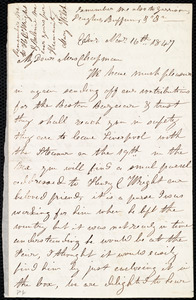 remember me also to Garrison
Douglass Buffum, &c &c
Edin. Nov. 16th 1847
My Dear Mrs Chapman
We have much pleasure
in again sending off our contributions
for the Boston Bazaar & trust
they shall reach you in safety
they are to leave Liverpool with
the steamer in the 19th in the
Box you will find a small parcel
addressed to Henry C. Wright our
beloved friend, it is a purse I was
working for him when he left the
country but it was not ready in time
understanding he would be at the
Fair, I thought it would easily
find him by just enclosing it in
the box, we are delighted to have